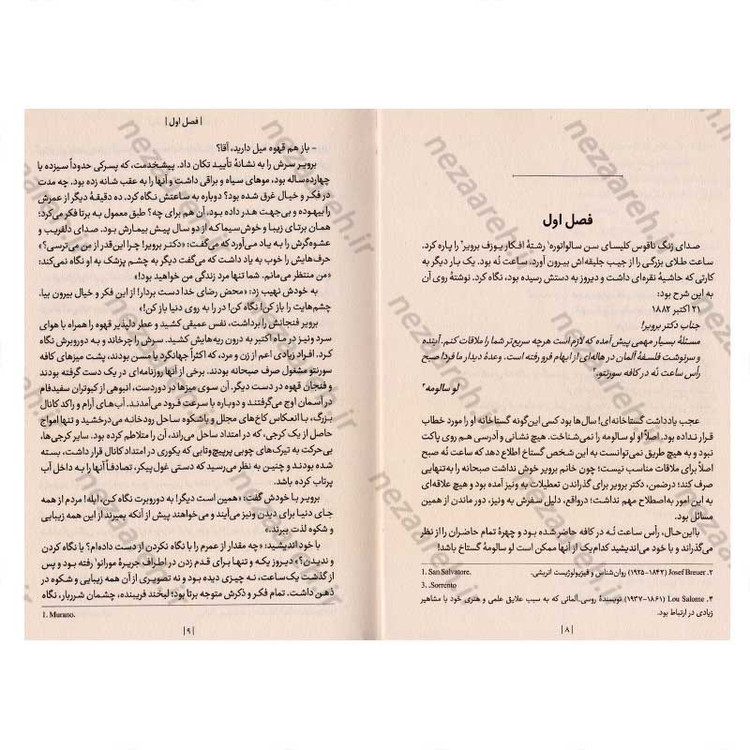 فصل اول
صدای زنگ ناقوس کلیسای سن سالواتوره¹ رشتهٔ افکار یوزف برویر² را پاره کرد.
ساعت طلای بزرگی را از جیب جلیقه‌اش بیرون آورد. ساعت نُه بود. یک بار دیگر به
کارتی که حاشیهٔ نقره‌ای داشت و دیروز به دستش رسیده بود، نگاه کرد. نوشتهٔ روی آن
به این شرح بود:
۲۱ اکتبر ۱۸۸۲
جناب دکتر برویر!
مسئلهٔ بسیار مهمی پیش آمده که لازم است هرچه سریع‌تر شما را ملاقات کنم. آینده
و سرنوشت فلسفهٔ آلمان در هاله‌ای از ابهام فرو رفته است. وعدهٔ دیدار ما فردا صبح
رأس ساعت نُه در کافه سورنتو.³
لو سالومه⁴
عجب یادداشت گستاخانه‌ای! سال‌ها بود کسی این‌گونه گستاخانه او را مورد خطاب
قرار نداده بود. اصلاً او لو سالومه را نمی‌شناخت. هیچ نشانی و آدرسی هم روی پاکت
نبود و به هیچ طریق نمی‌توانست به این شخص گستاخ اطلاع دهد که ساعت نُه صبح
اصلاً برای ملاقات مناسب نیست؛ چون خانم برویر خوش نداشت صبحانه را به‌تنهایی
صرف کند؛ درضمن، دکتر برویر برای گذراندن تعطیلات به ونیز آمده بود و هیچ علاقه‌ای
به این امور به‌اصطلاح مهم نداشت؛ درواقع، دلیل سفرش به ونیز، دور ماندن از همین
مسائل بود.
بااین‌حال، رأس ساعت نُه در کافه حاضر شده بود و چهرهٔ تمام حاضران را از نظر
می‌گذراند و با خود می‌اندیشید کدام‌یک از آنها ممکن است لو سالومهٔ گستاخ باشد!
1. San Salvatore.
۲. Josef Breuer (۱۸۴۲-۱۹۲۵) روان‌شناس و فیزیولوژیست اتریشی.
3. .Sorrento
۴. Lou Salome (۱۸۶۱-۱۹۳۷) نویسندهٔ روسی-آلمانی که به سبب علایق علمی و هنری خود با مشاهیر
زیادی در ارتباط بود.
|۸|
| فصل اول |
- باز هم قهوه میل دارید، آقا؟
برویر سرش را به نشانهٔ تأیید تکان داد. پیشخدمت، که پسرکی حدوداً سیزده یا
چهارده‌ساله بود، موهای سیاه و براقی داشت و آنها را به عقب شانه زده بود. چه مدت
در فکر و خیال غرق شده بود؟ دوباره به ساعتش نگاه کرد. ده دقیقهٔ دیگر از عمرش
را بیهوده و بی‌جهت هدر داده بود. آن هم برای چه؟ طبق معمول به برتا فکر می‌کرد؛
همان برتای زیبا و خوش‌سیما که از دو سال پیش بیمارش بود. صدای دلفریب و
عشوه‌گرش را به یاد می‌آورد که می‌گفت: «دکتر برویر! چرا این‌قدر از من می‌ترسی؟»
حرف‌هایش را خوب به یاد داشت که می‌گفت دیگر به چشم پزشک به او نگاه نمی‌کند:
«من منتظر می‌مانم. شما تنها مرد زندگی من خواهید بود!»
به خودش نهیب زد: «محض رضای خدا دست بردار! از این فکر و خیال بیرون بیا.
چشم‌هایت را باز کن! نگاه کن! در را به روی دنیا باز کن!»
برویر فنجانش را برداشت، نفس عمیقی کشید و عطر دلپذیر قهوه را همراه با هوای
سرد ونیز در ماه اکتبر به درون ریه‌هایش کشید. سرش را چرخاند و به دوروبرش نگاه
کرد. افراد زیادی اعم از زن و مرد، که اکثراً جهانگرد یا مسن بودند، پشت میزهای کافه
سورنتو مشغول صرف صبحانه بودند. برخی از آنها روزنامه‌ای در یک دست گرفته بودند
و فنجان قهوه در دست دیگر. آن سوی میزها در دوردست، انبوهی از کبوتران سفیدفام
در آسمان اوج می‌گرفتند و دوباره با سرعت فرود می‌آمدند. آب‌های آرام و راکد کانال
بزرگ، با انعکاس کاخ‌های مجلل و باشکوه ساحل رودخانه می‌درخشید و تنها امواج
حاصل از یک کرجی، که در امتداد ساحل می‌راند، آن را متلاطم کرده بود. سایر کرجی‌ها،
بی‌حرکت به تیرک‌های چوبی پرپیچ‌وتابی که یکوری در امتداد کانال قرار داشت، بسته
شده بودند و چنین به نظر می‌رسید که دستی غول‌پیکر، تصادفاً آنها را به داخل آب
پرتاب کرده باشد.
برویر با خودش گفت: «همین است دیگر! به دوروبرت نگاه کن، ابله! مردم از همه
جای دنیا برای دیدن ونیز می‌آیند و می‌خواهند پیش از آنکه بمیرند از این همه زیبایی
و شکوه لذت ببرند.»
با خود اندیشید: «چه مقدار از عمرم را با نگاه نکردن از دست داده‌ام؟ یا نگاه کردن
و ندیدن؟» دیروز یکه و تنها برای قدم زدن در اطراف جزیرهٔ مورانو¹ رفته بود و پس
از گذشت یک‌ساعت، نه چیزی دیده بود و نه تصویری از آن همه زیبایی و شکوه در
ذهن داشت. تمام فکر و ذکرش متوجه برتا بود؛ لبخند فریبنده، چشمان شرربار، نگاه
1. Murano.
|۹|
nezaareh.ir